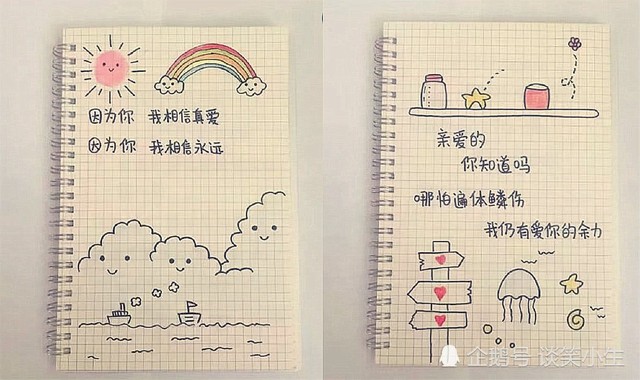 因为你 我相信真爱
因为你 我相信永远
亲爱的
你知道吗
哪怕遍体鳞伤
我仍有爱你的余力
企鹅号 谈笑小生